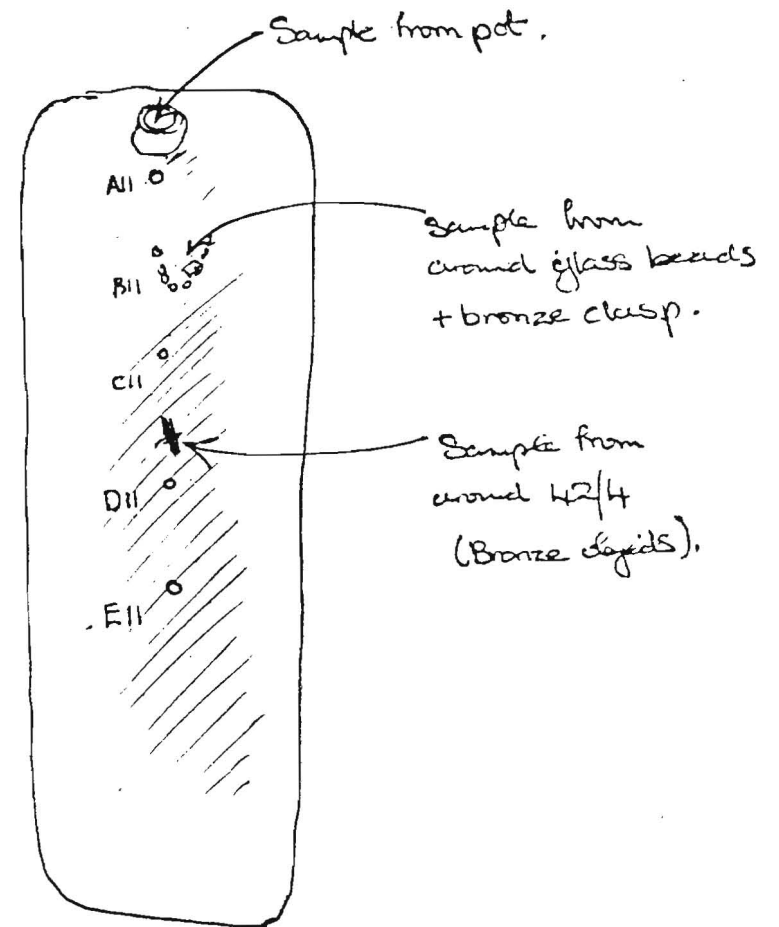 Sample from pot.
A11
sample from
around glass beads
+ bronze clasp.
B11
C11
Sample from
around 42/4
(Bronze
D11
E11